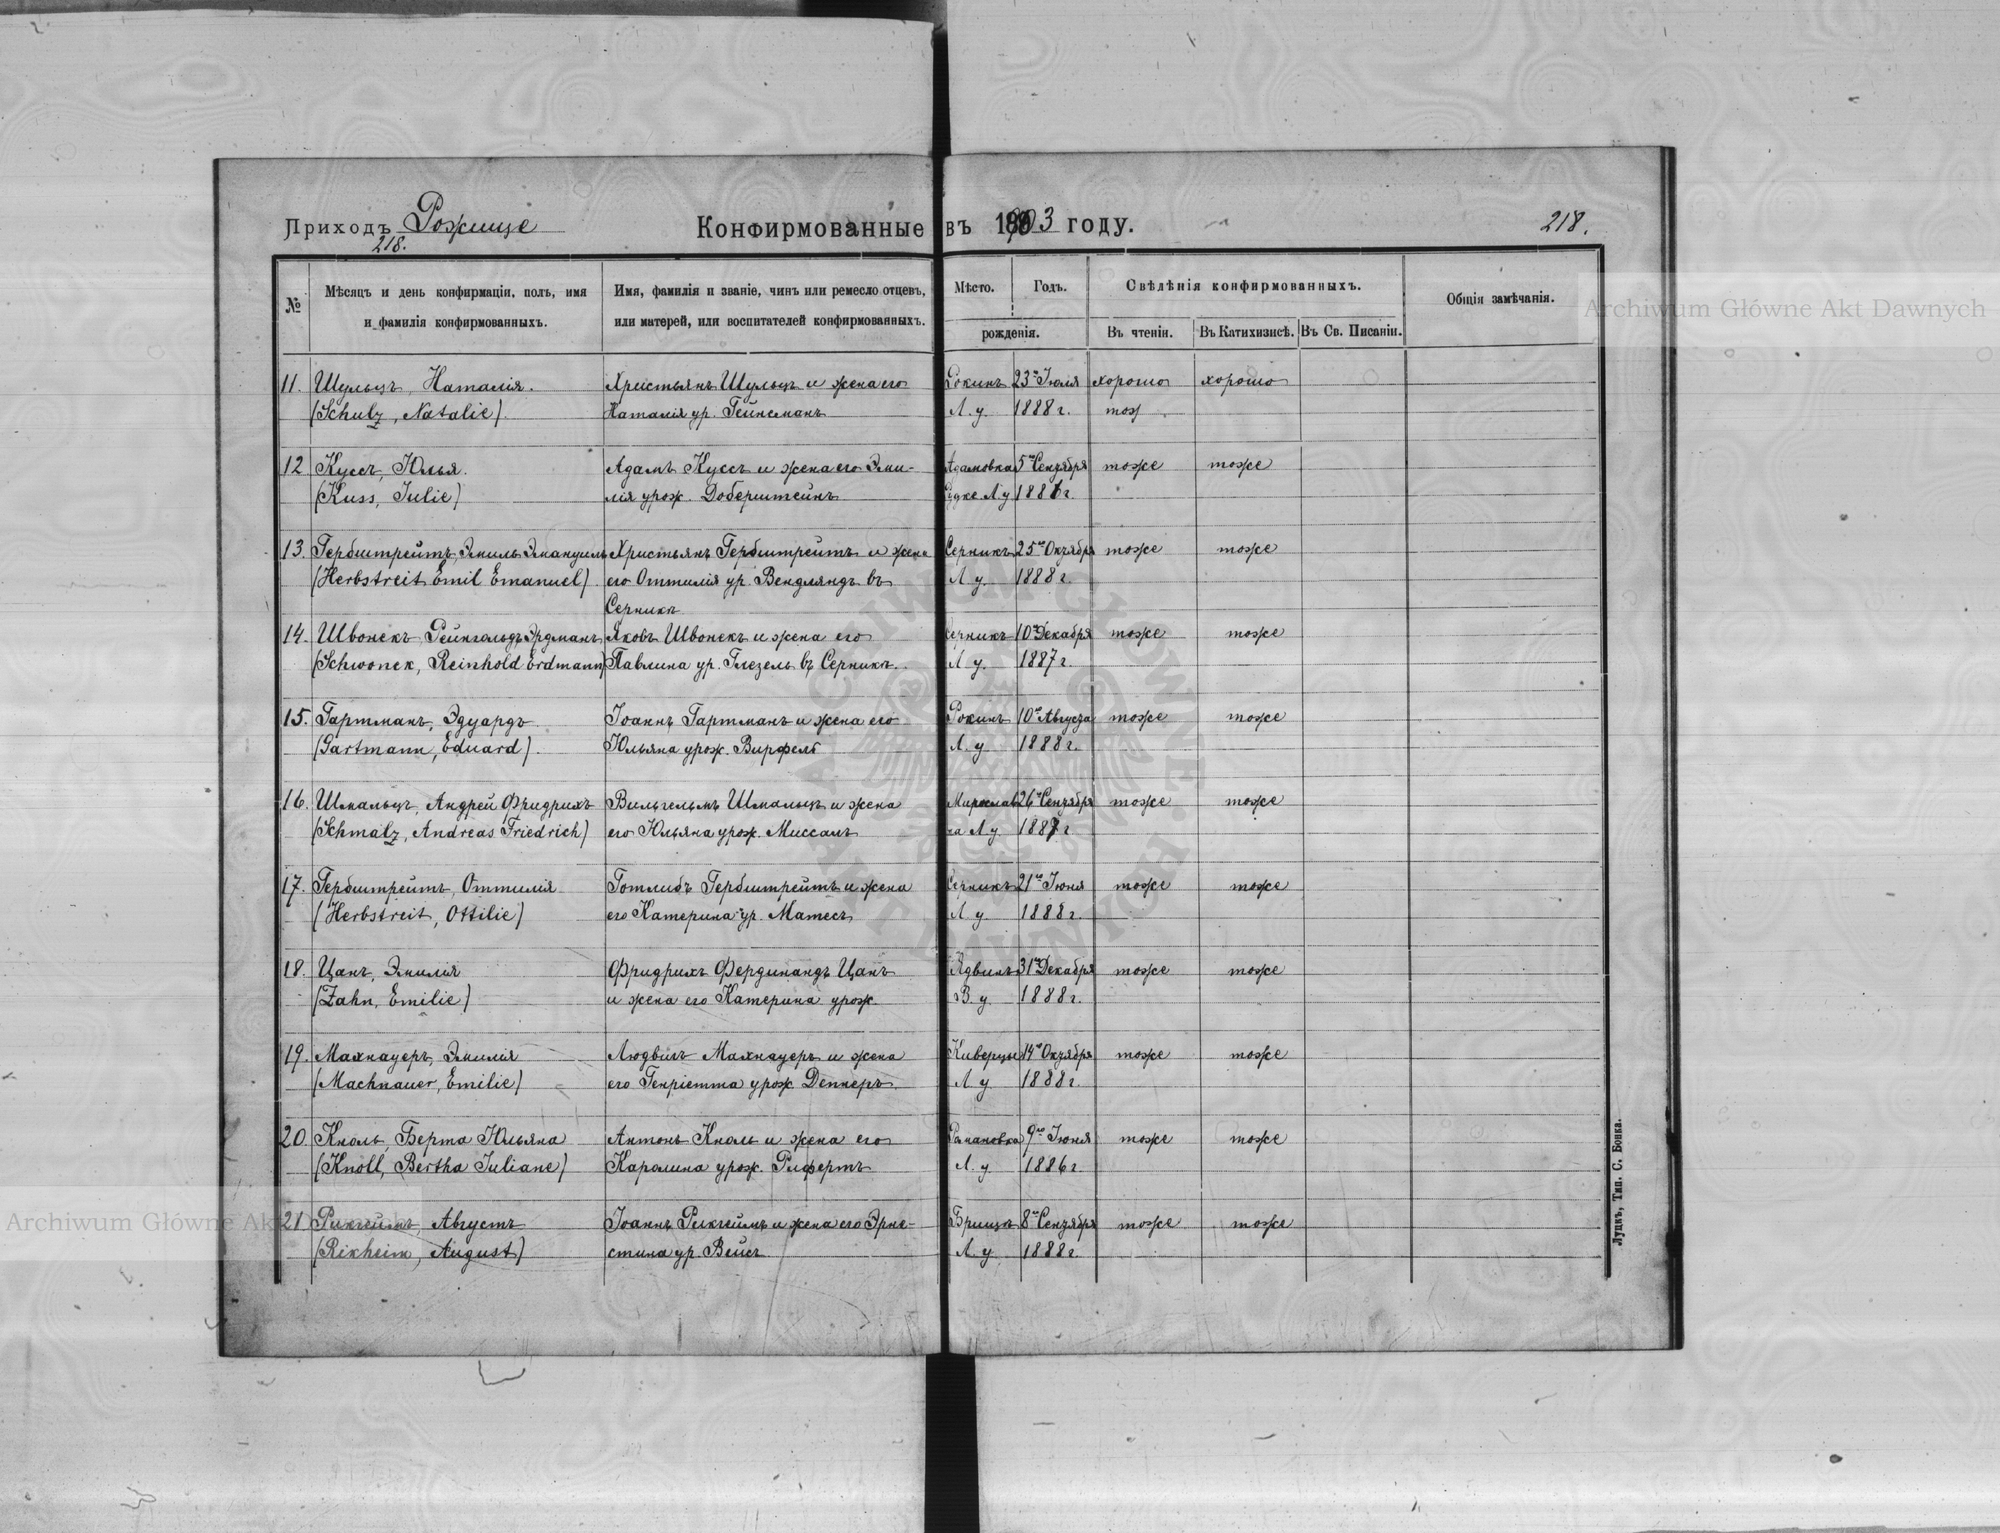 Приходъ Рожище
218.
Конфирмованные въ 1903 году.
218.
№
Мѣсяцъ и день конфирмаціи, полъ, имя
и фамилія конфирмованныхъ.
Имя, фамилія и званіе, чинъ или ремесло отцевъ,
или матерей, или воспитателей конфирмованныхъ.
Мѣсто.
Годъ.
рожденія.
Свѣдѣнія конфирмованныхъ.
Въ чтеніи.
Въ Катихизисѣ.
Въ Св. Писаніи.
Общія замѣчанія.
11. Шульцъ, Наталія. Христьянъ Шульцъ и жена его Рокинъ 23го Іюля хорошо хорошо
(Schulz, Natalie). Наталія ур. Гейнсманъ Л. у. 1888 г. тож
12 Куссъ, Юлья. Адамъ Куссъ и жена его Эми- Адамовка 5го Сентября тоже тоже
(Kuss, Julie) лія урож. Доберштейнъ Л у 188 г.
13. Гербштрейтъ, Эмиль Эмануиль Христьянъ Гербштрейтъ и жена Серникъ 25го Октября тоже тоже
(Herbstreit Emil Emanuel) его Оттилія ур. Вендляндъ въ Л у. 1888 г.
Серникъ
14. Швонекъ, Рейнгольдъ Эрдманъ Яковъ Швонекъ и жена его Серникъ 10го Декабря тоже тоже
(Schwonek, Reinhold Erdmann) Павлина ур. Глезель въ Серникъ. Л у. 1887 г.
15. Гартманъ, Эдуардъ Іоаннъ Гартманъ и жена его Рокинъ 10го Августа тоже тоже
(Gartmann, Eduard). Юльяна урож. Вирфель Л. у 1888 г.
16. Шмальцъ, Андрей Фридрихъ Вильгельмъ Шмальцъ и жена Мирослав 26го Сентября тоже тоже
(Schmalz, Andreas Friedrich) его Юльяна урож. Миссаль ка Л у. 1887 г
17. Гербштрейтъ, Оттилія Готлибъ Гербштрейтъ и жена Серникъ 21го Іюня тоже тоже
(Herbstreit, Ottilie) его Катерина ур. Матесъ Л у. 1888 г.
18. Цанъ, Эмилія Фридрихъ Фердинандъ Цанъ Ядвинъ 31го Декабря тоже тоже
(Zahn, Emilie) и жена его Катерина урож В у. 1888 г.
19. Махнауеръ, Эмилія Людвигъ Махнауеръ и жена Киверцы 14го Октября тоже тоже
(Machnauer, Emilie) его Генріетта урож Деннеръ Л у. 1888 г.
20. Кноль, Берта Юльяна Антонъ Кноль и жена его Романовка 9го Іюня тоже тоже
(Knoll, Bertha Juliane) Каролина урож. Рифертъ Л. у 1886 г.
21 Рикгеймъ, Августъ Іоаннъ Рикгеймъ и жена его Эрне- Брищъ 8го Сентября тоже тоже
(Rikheim, August) стина ур. Вейсъ Л. у 1888 г.
Луцкъ, Тип. С. Бонка.
Archiwum Główne Akt Dawnych
Archiwum Główne Akt Dawnych
ARCHIWUM GŁÓWNE AKT DAWNYCH